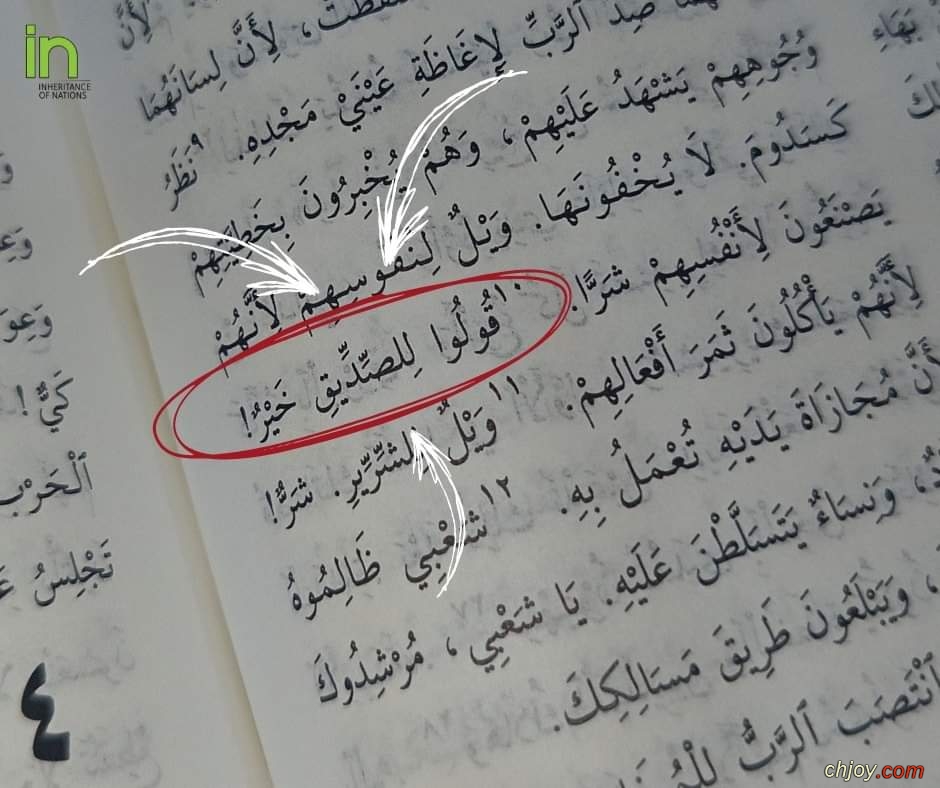 in
INHERITANCE
OF NATIONS
ضِدَّ ٱلرَّبِّ لِإِغَاظَةِ عَيْنَيْ مَجْدِهِ. ٩ نَظَرُ
لِأَنَّ لِسَانَهُمَا
وُجُوهِهِمْ يَشْهَدُ عَلَيْهِمْ، وَهُمْ يُخْبِرُونَ بِخَطِيَّتِهِمْ
كَسَدُومَ. لَا يُخْفُونَهَا. وَيْلٌ لِنُفُوسِهِمْ لِأَنَّهُمْ
يَصْنَعُونَ لِأَنْفُسِهِمْ شَرًّا. ١٠ قُولُوا لِلصِّدِّيقِ خَيْرٌ!
لِأَنَّهُمْ يَأْكُلُونَ ثَمَرَ أَفْعَالِهِمْ. ١١ وَيْلٌ لِلشِّرِّيرِ. شَرٌّ!
لِأَنَّ مُجَازَاةَ يَدَيْهِ تُعْمَلُ بِهِ. ١٢ شَعْبِي ظَالِمُوهُ
وَنِسَاءٌ يَتَسَلَّطْنَ عَلَيْهِ. يَا شَعْبِي، مُرْشِدُوكَ
وَيَبْلَعُونَ طَرِيقَ مَسَالِكِكَ.
ٱنْتَصَبَ ٱلرَّبُّ
بَهَاءِ
كَيٌّ!
ٱلْحَرْبِ
تَجْلِسُ
٤
chjoy.com